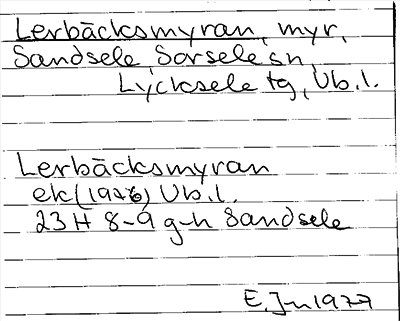 Lerbäcksmyran, myr,
Sandsele, Sorsele sn,
Lycksele tg, Vb.l.
Lerbäcksmyran
ek (1976) Vb.l.
23 H 8-9 g-h Sandsele
E. J-n 1977